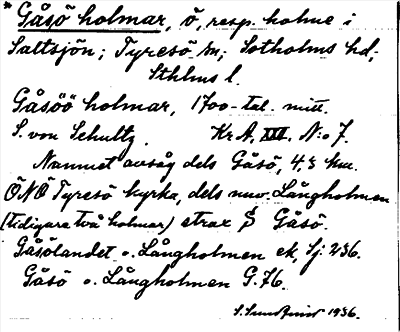 * Gåsö holmar, ö, resp. holme i
Saltsjön; Tyresö sn; Sotholms hd;
Sthlms l.
Gåsöö holmar, 1700-tal. mitt.
S. von Schultz. Kr A. XIII. N:o 7.
Namnet avsåg dels Gåsö, 4,3 km.
ÖNÖ Tyresö kyrka, dels nuv. Långholmen
(tidigare två holmar) strax S Gåsö.
Gåsölandet o. Långholmen ek. Sj. 236.
Gåsö o. Långholmen G. 76.
S. Sundqvist 1936.